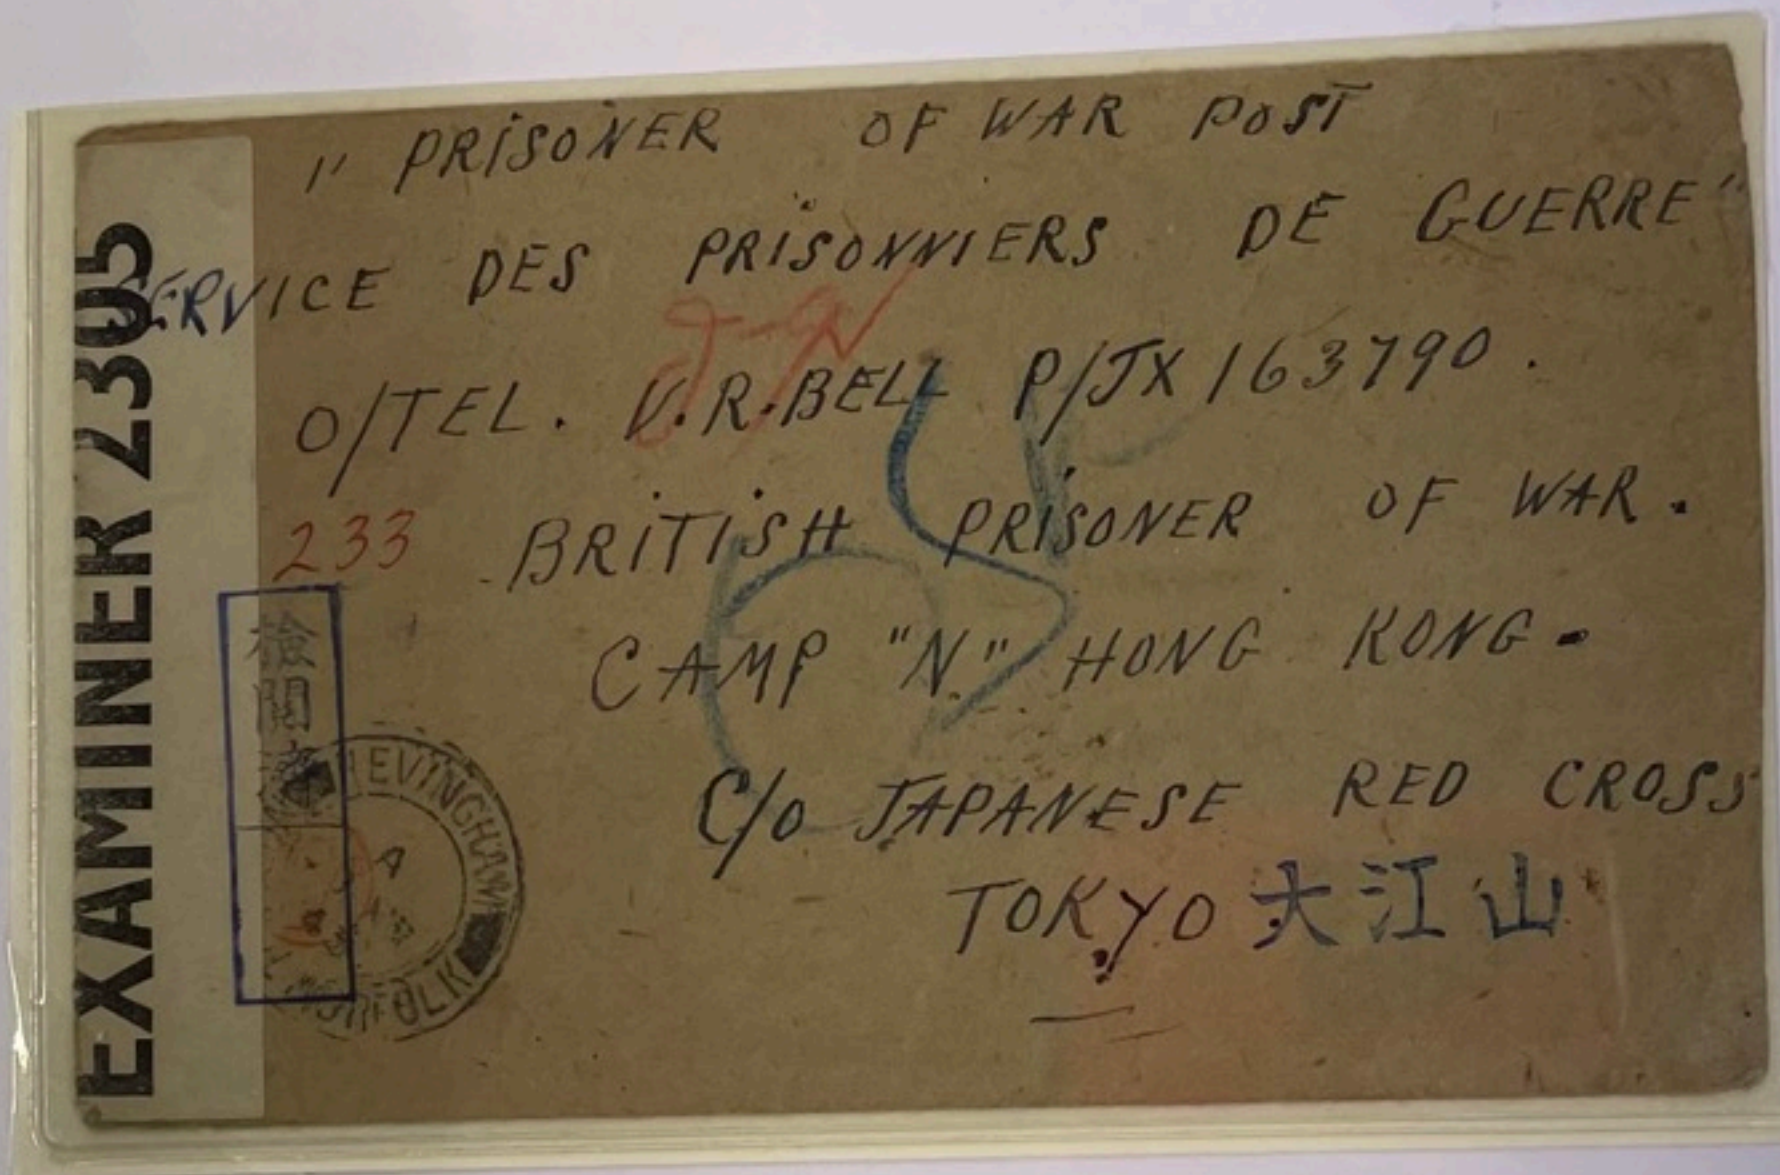 " PRISONER OF WAR POST
SERVICE DES PRISONNIERS DE GUERRE"
O/TEL. V.R.BELL P/JX 163790.
233 BRITISH PRISONER OF WAR.
CAMP "N" HONG KONG.
C/O JAPANESE RED CROSS
TOKYO 大江山
EXAMINER 2305
検閲済
HEVINGHAM